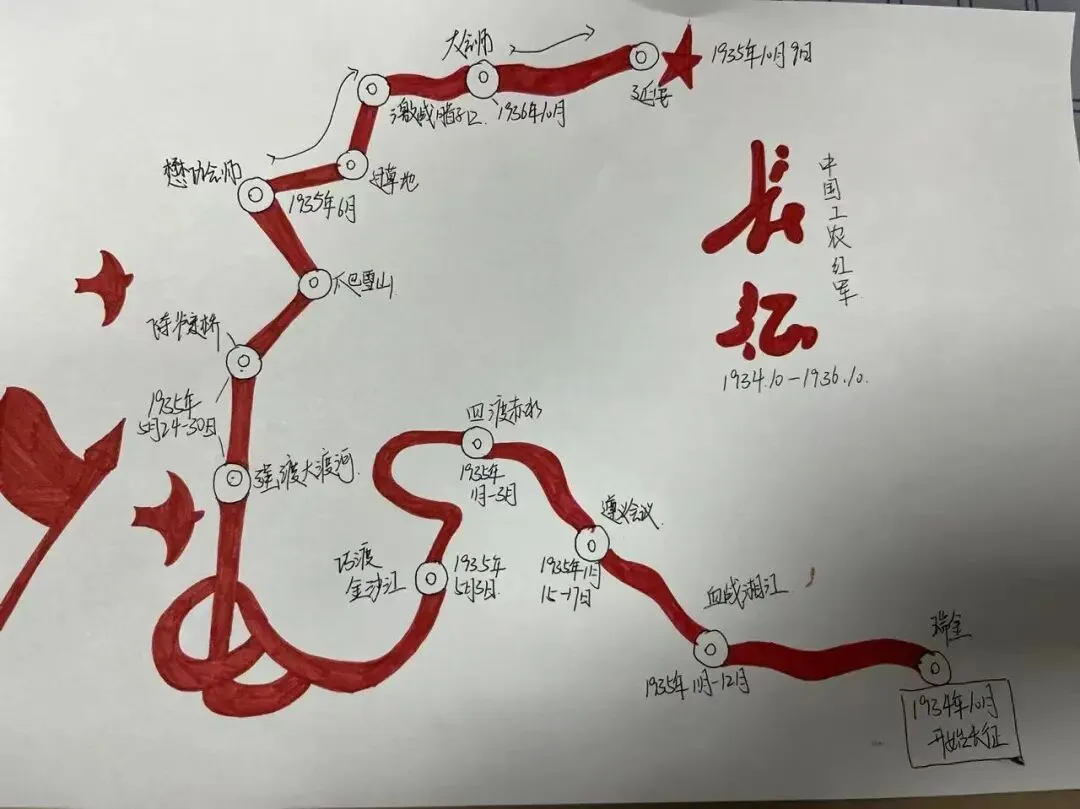 大会师
1936年10月
延安
1935年10月9日
激战腊子口
过草地
懋功会师
1935年6月
爬雪山
飞夺泸定桥
1935年
5月24-30日
强渡大渡河
巧渡
金沙江
1935年
5月3日
四渡赤水
1935年
1月-3月
遵义会议
1935年1月
15-17日
血战湘江
1935年11月-12月
瑞金
1934年10月
开始长征
长征
中国工农红军
1934.10-1936.10.